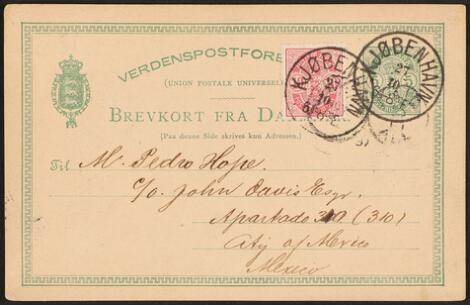 VERDENSPOSTFORE
(UNION POSTALE UNIVERSEL
BREVKORT FRA DA
(Paa denne Side skrives kun Adressen.)
KJØBENHAVN
KJØBENHAVN
Til M. Pedro Hope.
c/o John Davis Esqr.
Apartado (310)
City of Mexico
Mexico